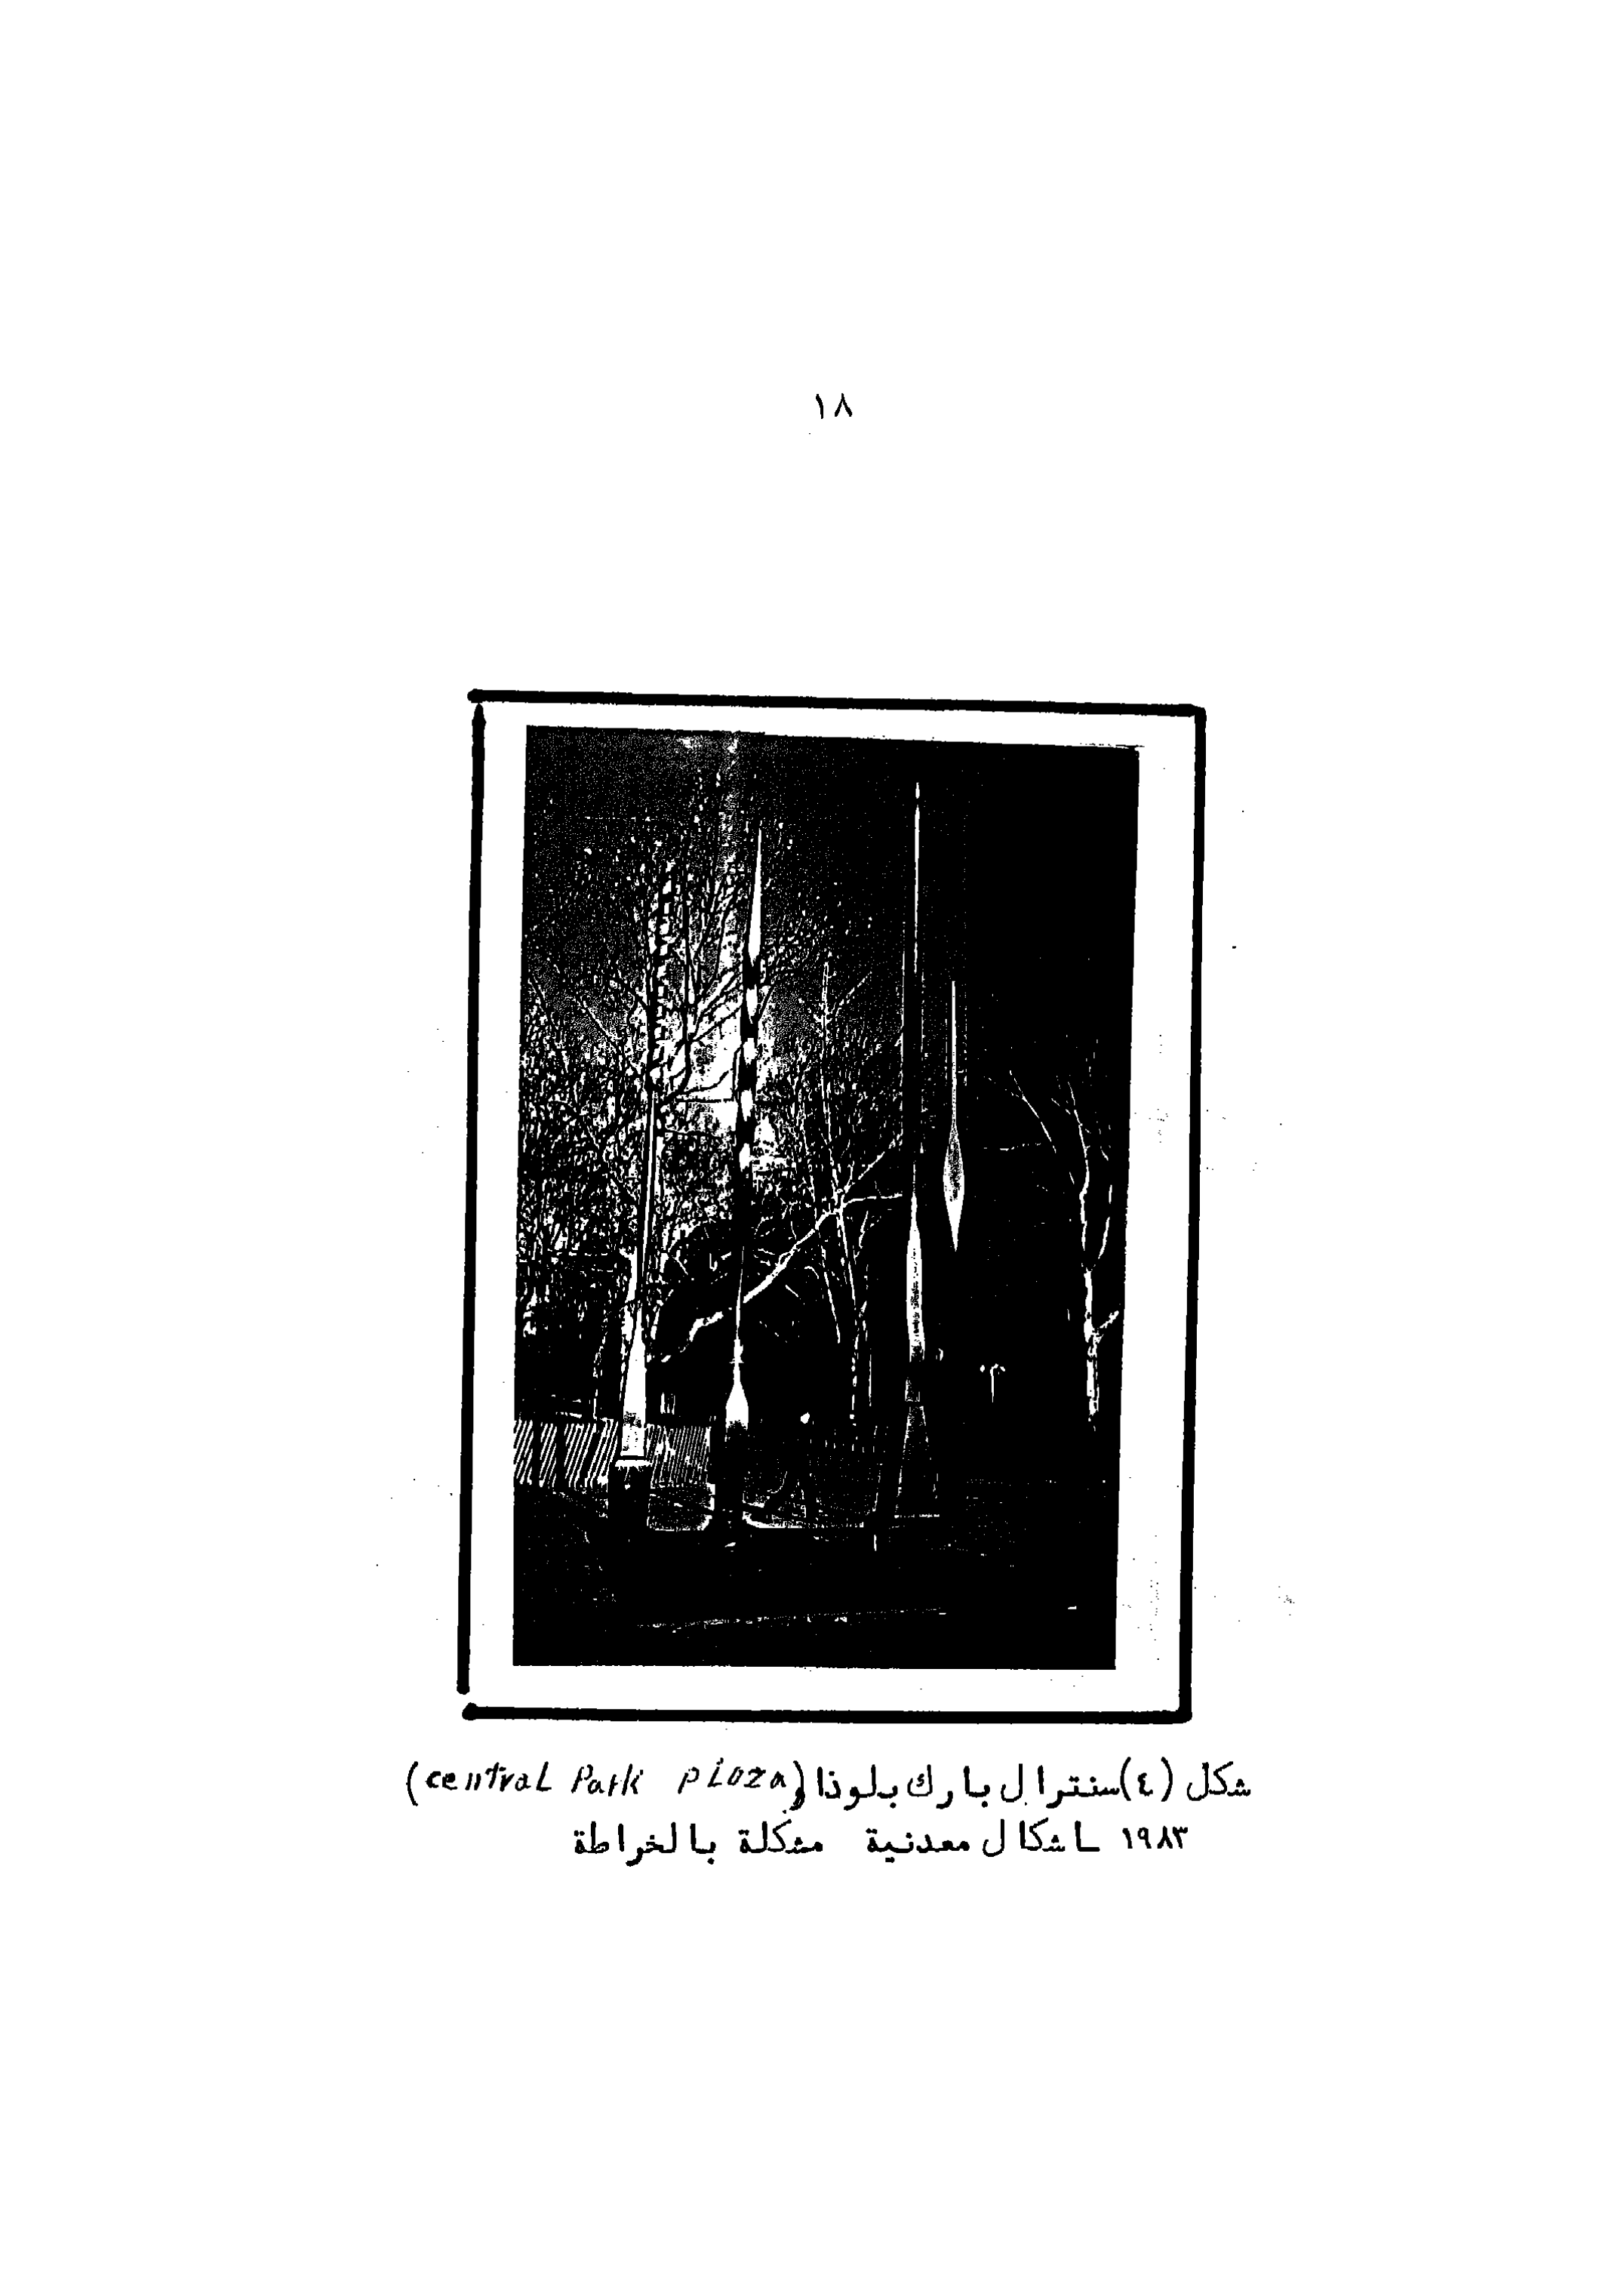 ١٨
شكل (٤) سنترال بارك بلوذا (central Park Ploza)
١٩٨٣ ـ اشكال معدنية مشكلة بالخراطة